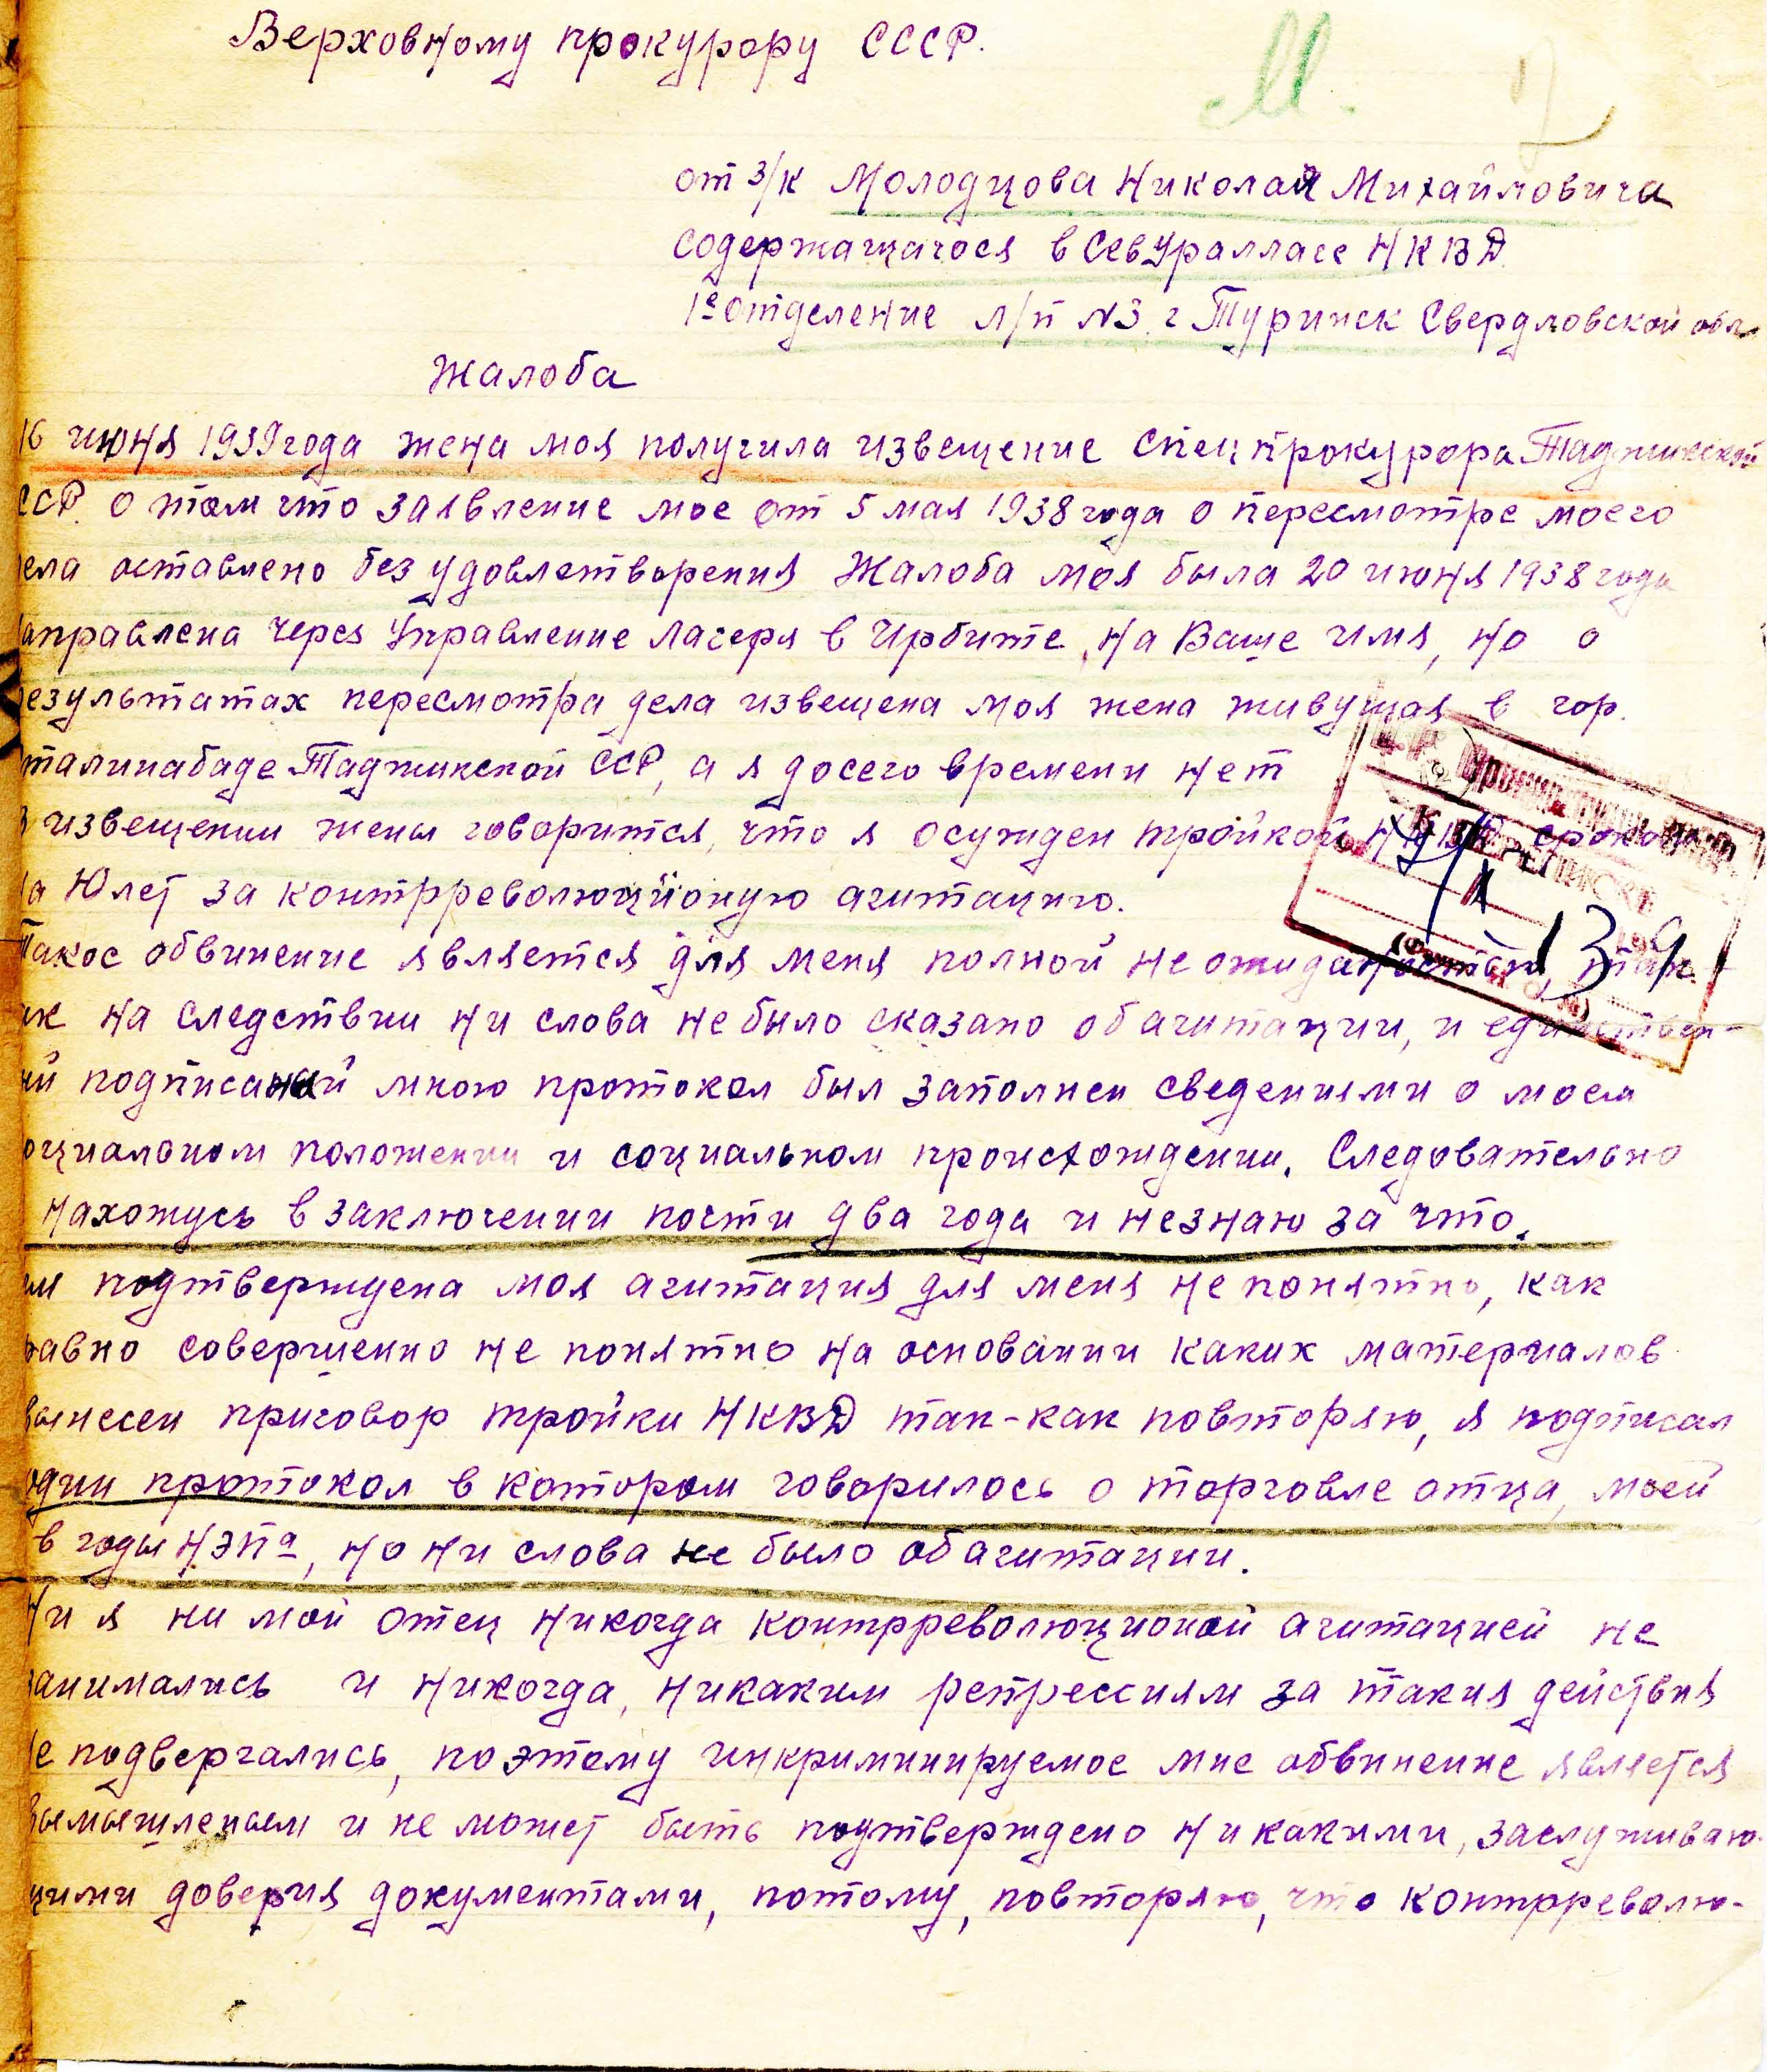 Верховному прокурору СССР.
М.
от з/к Молодцова Николая Михайловича
содержащагося в СевУраллаге НКВД
1е отделение л/п №3. г Туринск Свердловской обл
Жалоба
16 июня 1939 года жена моя получила извещение Спецпрокурора Таджикской
ССР. о том что заявление мое от 5 мая 1938 года о пересмотре моего
ела оставлено без удовлетворения Жалоба моя была 20 июня 1938 года
аправлена через Управление Лагеря в Ирбите, на Ваше имя, но о
езультатах пересмотра дела извещена моя жена живущая в гор.
талинабаде Таджикской ССР, а я досего времени нет
В извещении жены говорится, что я осужден тройкой НКВД сроком
на 10 лет за контрреволюционую агитацию.
Такое обвинение является для меня полной неожиданностью, так
ак на следствии ни слова не было сказано об агитации, и единствен-
ый подписаный мною протокол был заполнен сведениями о моем
оциальном положении и социальном происхождении. Следовательно
нахожусь в заключении почти два года и незнаю за что.
ем подтверждена моя агитация для меня не понятно, как
равно совершенно не понятно на основании каких материалов
вынесен приговор тройки НКВД так-как повторяю, я подписал
один протокол в котором говорилось о торговле отца, моей
в годы НЭПа, но ни слова не было об агитации.
Ни я ни мой отец никогда контрреволюционой агитацией не
занимались и никогда, никаким репрессиям за такия действия
не подвергались, поэтому инкриминируемое мне обвинение является
вымышленым и не может быть подтверждено никакими, заслуживаю-
щими доверия документами, потому, повторяю, что контрреволю-
К ПЕРЕПИСКЕ
139